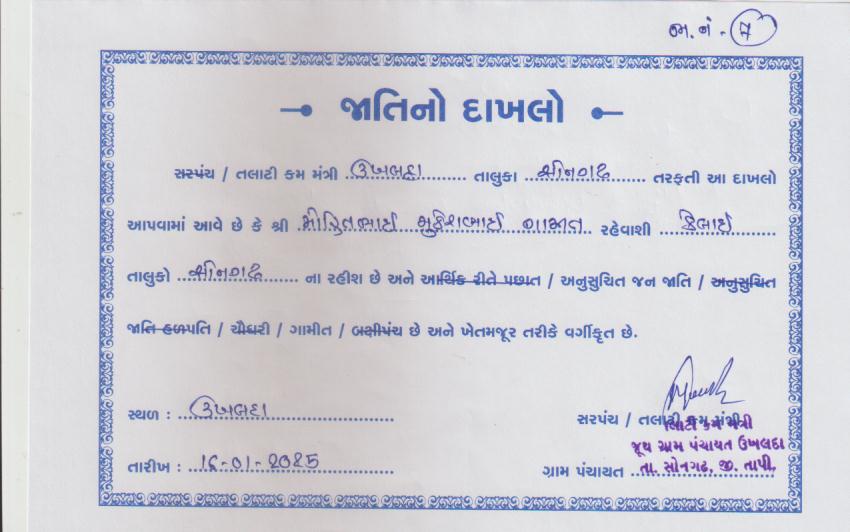 જા.નં - 7
જાતિનો દાખલો
સરપંચ / તલાટી કમ મંત્રી ઉખલદા તાલુકા સોનગઢ તરફતી આ દાખલો
આપવામાં આવે છે કે શ્રી મોહિતભાઈ મુકેશભાઈ ગામીત રહેવાશી
તાલુકો સોનગઢ ના રહીશ છે અને આર્થિક રીતે પછાત / અનુસુચિત જન જાતિ / અનુસુચિત
જાતિ હળપતિ / ચૌધરી / ગામીત / બક્ષીપંચ છે અને ખેતમજૂર તરીકે વર્ગીકૃત છે.
સ્થળ : ઉખલદા
સરપંચ / તલાટી કમ મંત્રી
તલાટી કમ મંત્રી
જૂથ ગ્રામ પંચાયત ઉખલદા
તારીખ : 16-01-2025
ગ્રામ પંચાયત તા. સોનગઢ, જી. તાપી.